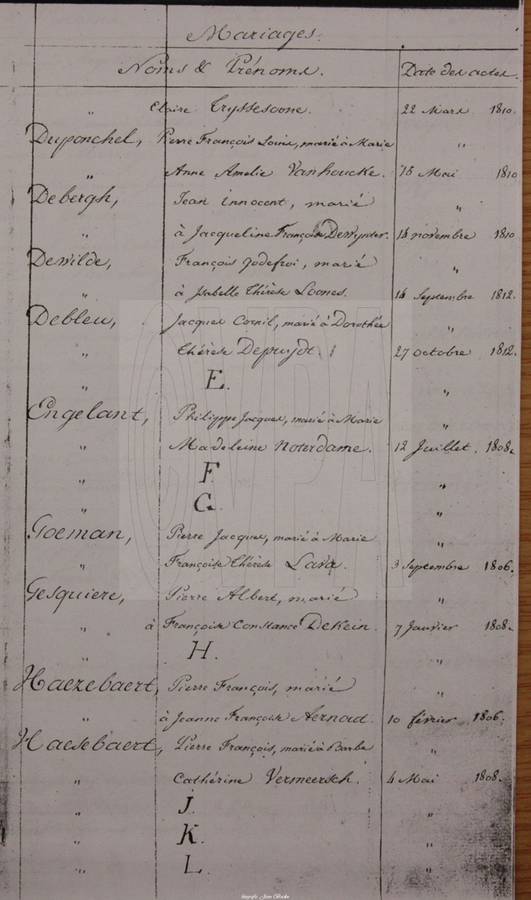 Mariages.
Noms & Prénoms. Date des actes
" Claire Cryssesoone. 22 Mars 1810.
Duponchel, Pierre François Louis, marié à Marie "
" Anne Amelie Vanhoucke. 15 Mai 1810
Debergh, Jean innocent, marié "
" à Jacqueline Françoise Dewynter. 14 novembre 1810
Dewilde, François Godefroi, marié "
" à Isabelle Thérèse Loones. 14 Septembre 1812.
Debleu, Jacques Cornil, marié à Dorothée "
" Thérèse Depuydt. 27 octobre 1812.
" E. "
Engelant, Philippe Jacques, marié à Marie "
" Madeleine Noterdame. 12 Juillet. 1808.
" F "
" G. "
Goeman, Pierre Jacques, marié à Marie "
" Françoise Thérèse 3 Septembre 1806.
Gesquiere, Pierre Albert, marié "
à Françoise Constance DeKein. 7 Janvier 1808.
" H. "
Haezebaert, Pierre François, marié "
" à Jeanne Françoise Aernout. 10 février 1806.
Haesebaert, Pierre François, marié à Barbe "
" Cathérine Vermeersch. 4 Mai 1808.
" J. "
" K. "
" L. "
CVPA